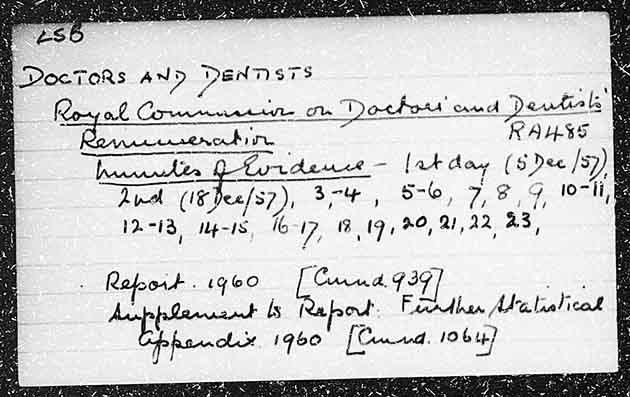 LSB
DOCTORS AND DENTISTS
Royal Commission on Doctors' and Dentists'
Remuneration RA485
Minutes of Evidence - 1st day (5 Dec/57),
2nd (18 Dec/57), 3,-4, 5-6, 7, 8, 9, 10-11,
12-13, 14-15, 16-17, 18, 19, 20, 21, 22, 23,
Report. 1960 [Cmnd. 939]
Supplement to Report: Further Statistical
Appendix 1960 [Cmnd. 1064]